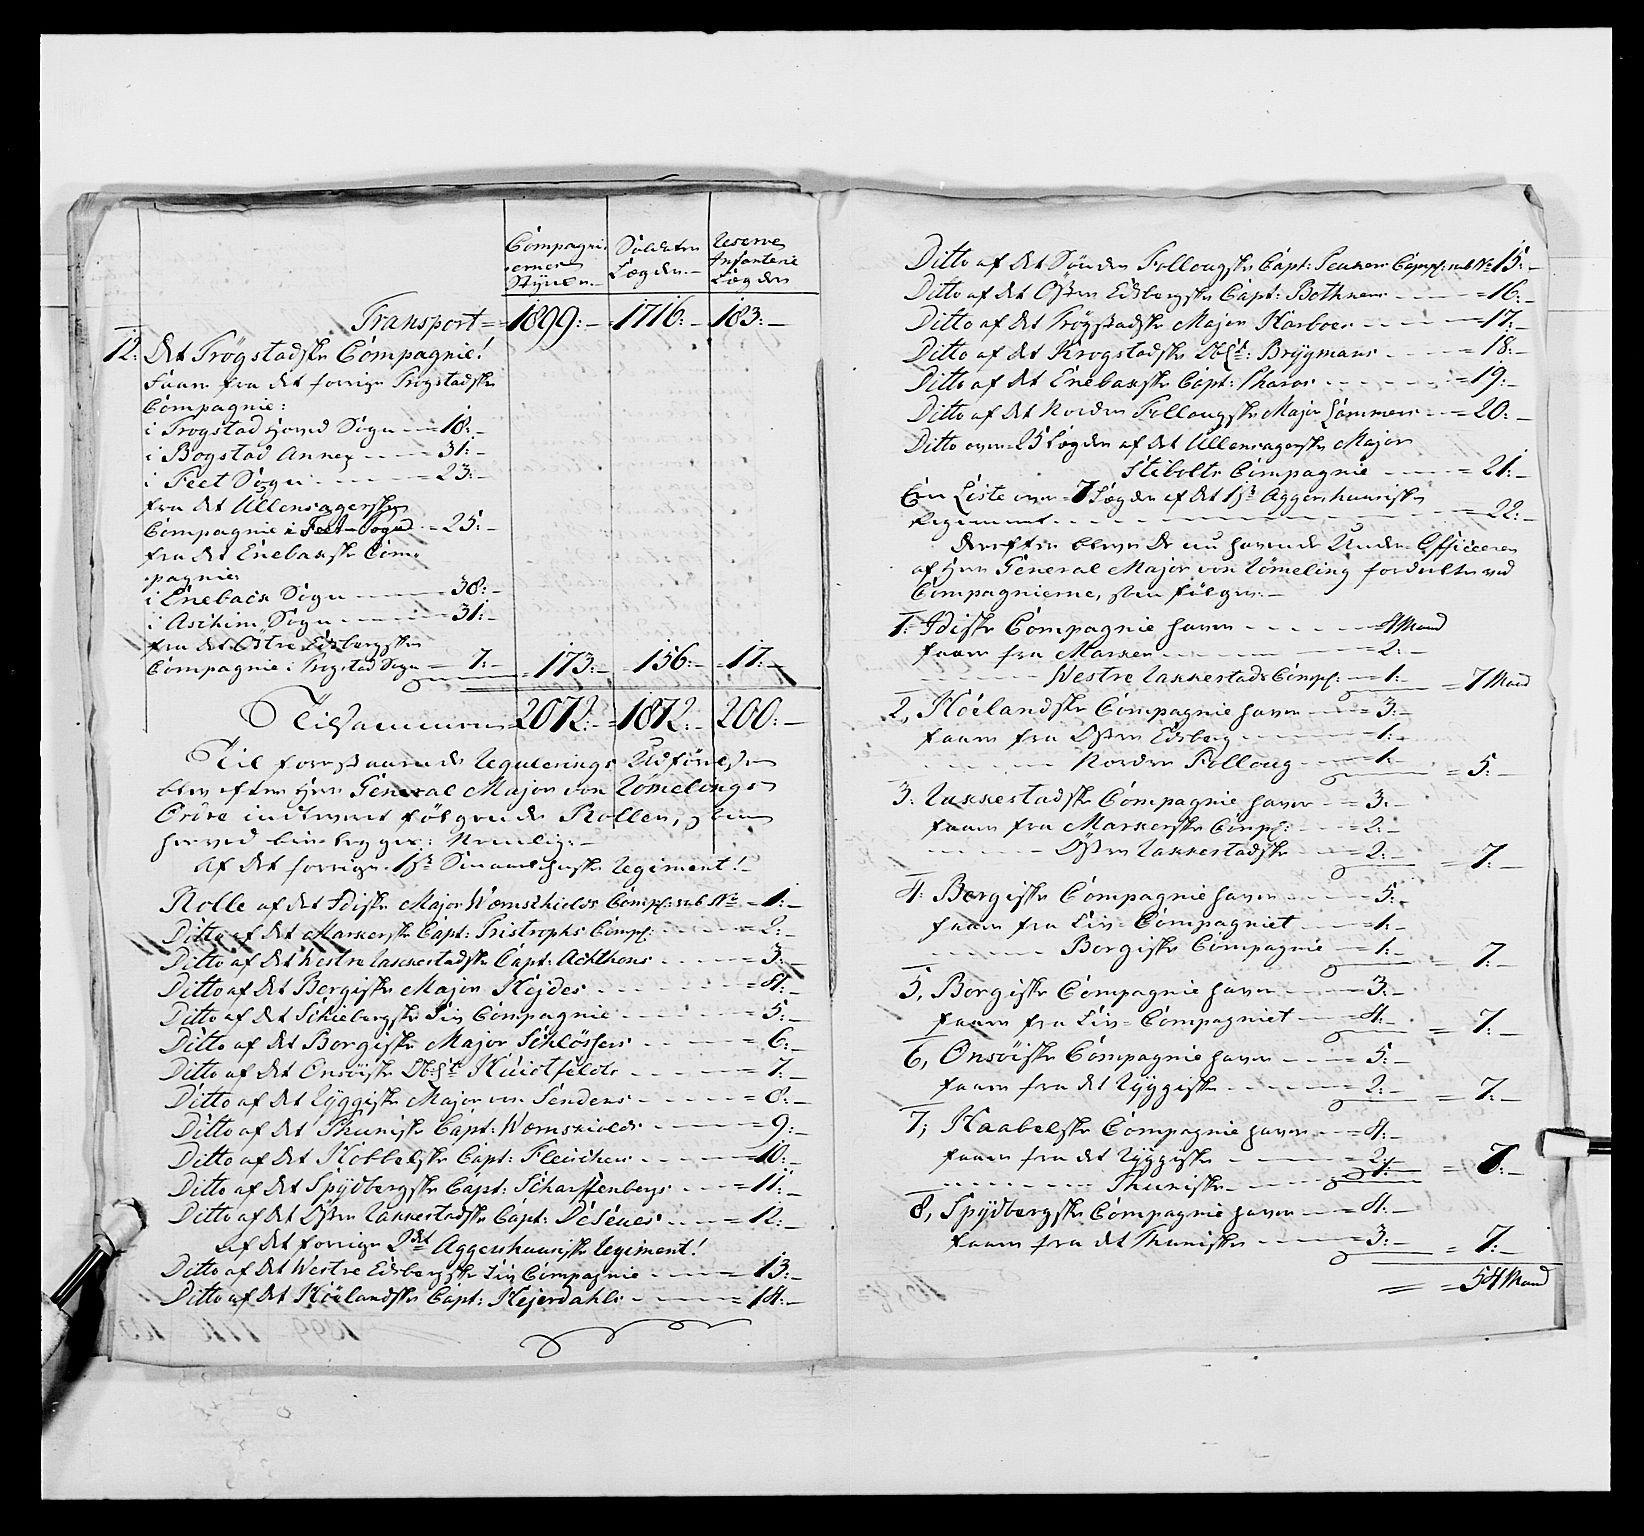 Compagni- Soldater Reserve
ernes Lægder.- Infanterie
Styrke.- Lægder
Transport = 1899:- 1716:- 183:-
12: Det Trögstadske Compagnie!
faaer fra det forrige Trogstadske
Compagnie:
i Trogstad hoved Sogn - = 18:-
i Bogstad Annex - - - - 31:-
i Feet Sogn - - - - = 23:-
fra det Ullensagerske
Compagnie i Feet Sogn - = 25:-
fra det Enebakske Com-
pagnie
i Eneback Sogn - - - 38:-
i Aschim Sogn - - - 31:-
fra det Östre Edsbergske
Compagnie i Trogstad Sogn = 7:- = 173:- 156:- 17:-
Tilsammen = 2072:- = 1872:- 200:-
Til forestaaende Regulerings Udförelse
blev efter Herr General Major von Römelings
Ordre indleveret fölgende Roller, som
herved bielegges: Nemlig:-
Af det forrige 1ste Smaalehnske Regiment!-
Rolle af det Idiske Major Wornskiolds Comp: sub No = 1:-
Ditto af det Markerske Capt: Pistrophs Comp: - - = 2:-
Ditto af det Westre Rakkestadske Capt: Achthons - - = 3:-
Ditto af det Bergiske Major Hejdes - - - = 4:-
Ditto af det Schiebergske Liv Compagnie - - - = 5:-
Ditto af det Borgiske Major Schlössers - - - = 6:-
Ditto af det Onsöiske Obstlt: Huitfeldts - - - = 7:-
Ditto af det Ryggiske Major von Sendens - - - = 8:-
Ditto af det Thuniske Capt: Wornskiolds - - - = 9:-
Ditto af det Kobbelske Capt: Fleischers - - - = 10:-
Ditto af det Spydbergske Capt: Scharffenbergs - - = 11:-
Ditto af det Östre Rakkestadske Capt: DeSeues - - = 12:-
af det forrige 2det Aggershuusiske Regiment!
Ditto af det Westre Edsbergske Liv Compagnie - - = 13:-
Ditto af det Höelandske Capt: Hejerdahls - - - = 14:-
Ditto af det Söndre Follougske Capt: Comp: sub No 15:-
Ditto af det Östre Edsbergske Capt: Bothners - - = 16:-
Ditto af det Trögstadske Major Harboes - - - = 17:-
Ditto af det Krogstadske Obstlt: Brygmans - - - = 18:-
Ditto af det Enebakske Capt: - - - = 19:-
Ditto af det Nordre Follougske Major Lammers - = 20:-
Ditto over 25 Lægder af det Ullensagerske Major
Stibolts Compagnie - - - = 21:-
Een Liste over 7 Lægder af det 1ste Aggershuusiske
Regiment - - - - - - - = 22:-
Derefter blev De nu havende Under-Officerer
af Herr General Major von Römeling fordeelte ved
Compagnierne, som fölger:-
1: Idiske Compagnie haver - - - - 4 Mand
faaer fra Marker - - - - 2:-
- - - - Westre Rakkestads Comp: - 1:- = 7 Mand
2, Höelandske Compagnie haver - - 3:-
faaer fra Östre Edsberg - - - 1:-
- - - - Nordre Folloug - - 1:- = 5:-
3: Rakkestadske Compagnie haver - = 3:-
faaer fra Markerske Comp: - - 2:-
- - - - Östre Rakkestadske - - = 2:- = 7:-
4: Bergiske Compagnie haver - - 5:-
faaer fra Liv-Compagniet - - = 1:-
- - - - Borgiske Compagnie - = 1:- = 7:-
5, Borgiske Compagnie haver - - 3:-
faaer fra Liv-Compagniet - - 4:- = 7:-
6, Onsöiske Compagnie haver - - 5:-
faaer fra det Ryggiske - - - 2:- = 7:-
7, Haabelske Compagnie haver - = 4:-
faaer fra det Ryggiske - - - 2:-
- - - - - Thuniske - - - 1:- = 7:-
8, Spydbergske Compagnie haver - = 4:-
faaer fra det Thuniske - - - 3:- = 7:-
= = 54 Mand